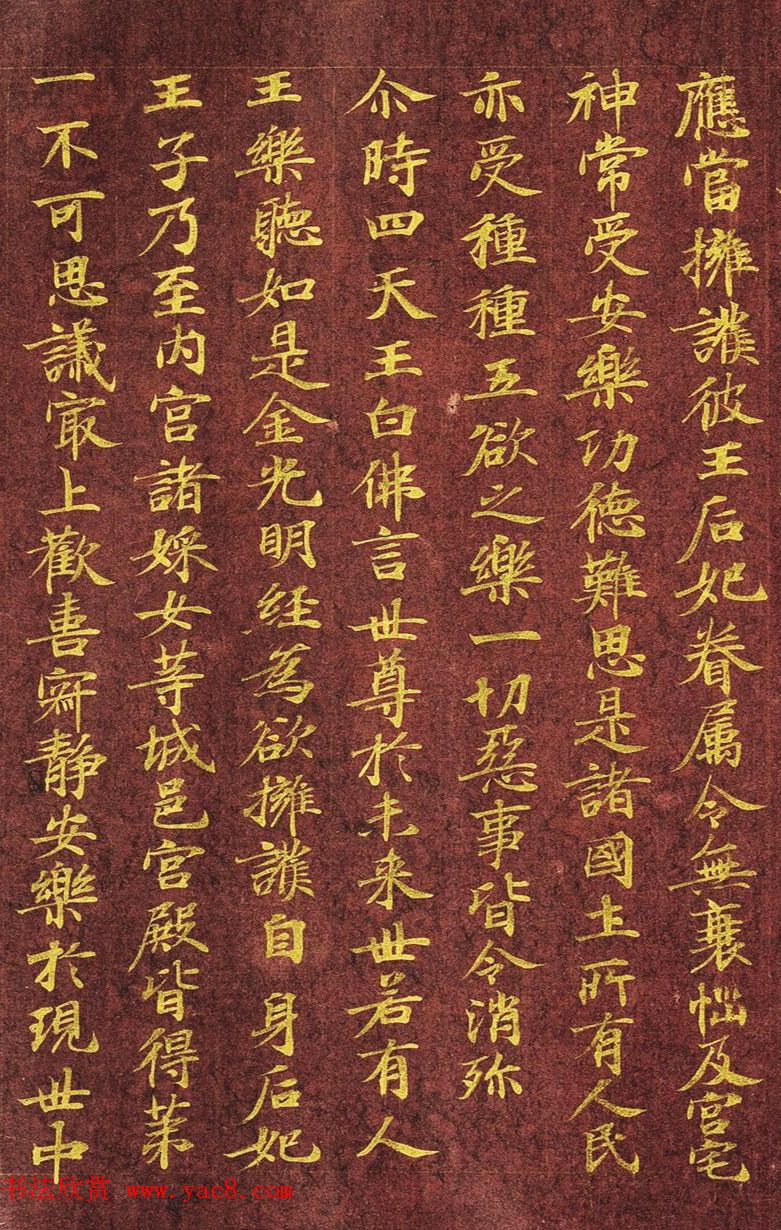 應當擁護彼王后妃眷属令無衰惱及宮宅
神常受安樂功德難思是諸國土所有人民
亦受種種五欲之樂一切惡事皆令消殄
尒時四天王白佛言世尊於未来世若有人
王樂聽如是金光明經為欲擁護自身后妃
王子乃至内宮諸婇女等城邑宮殿皆得苐
一不可思議冣上歡喜寂靜安樂於現世中
书法欣赏 www.yac8.com